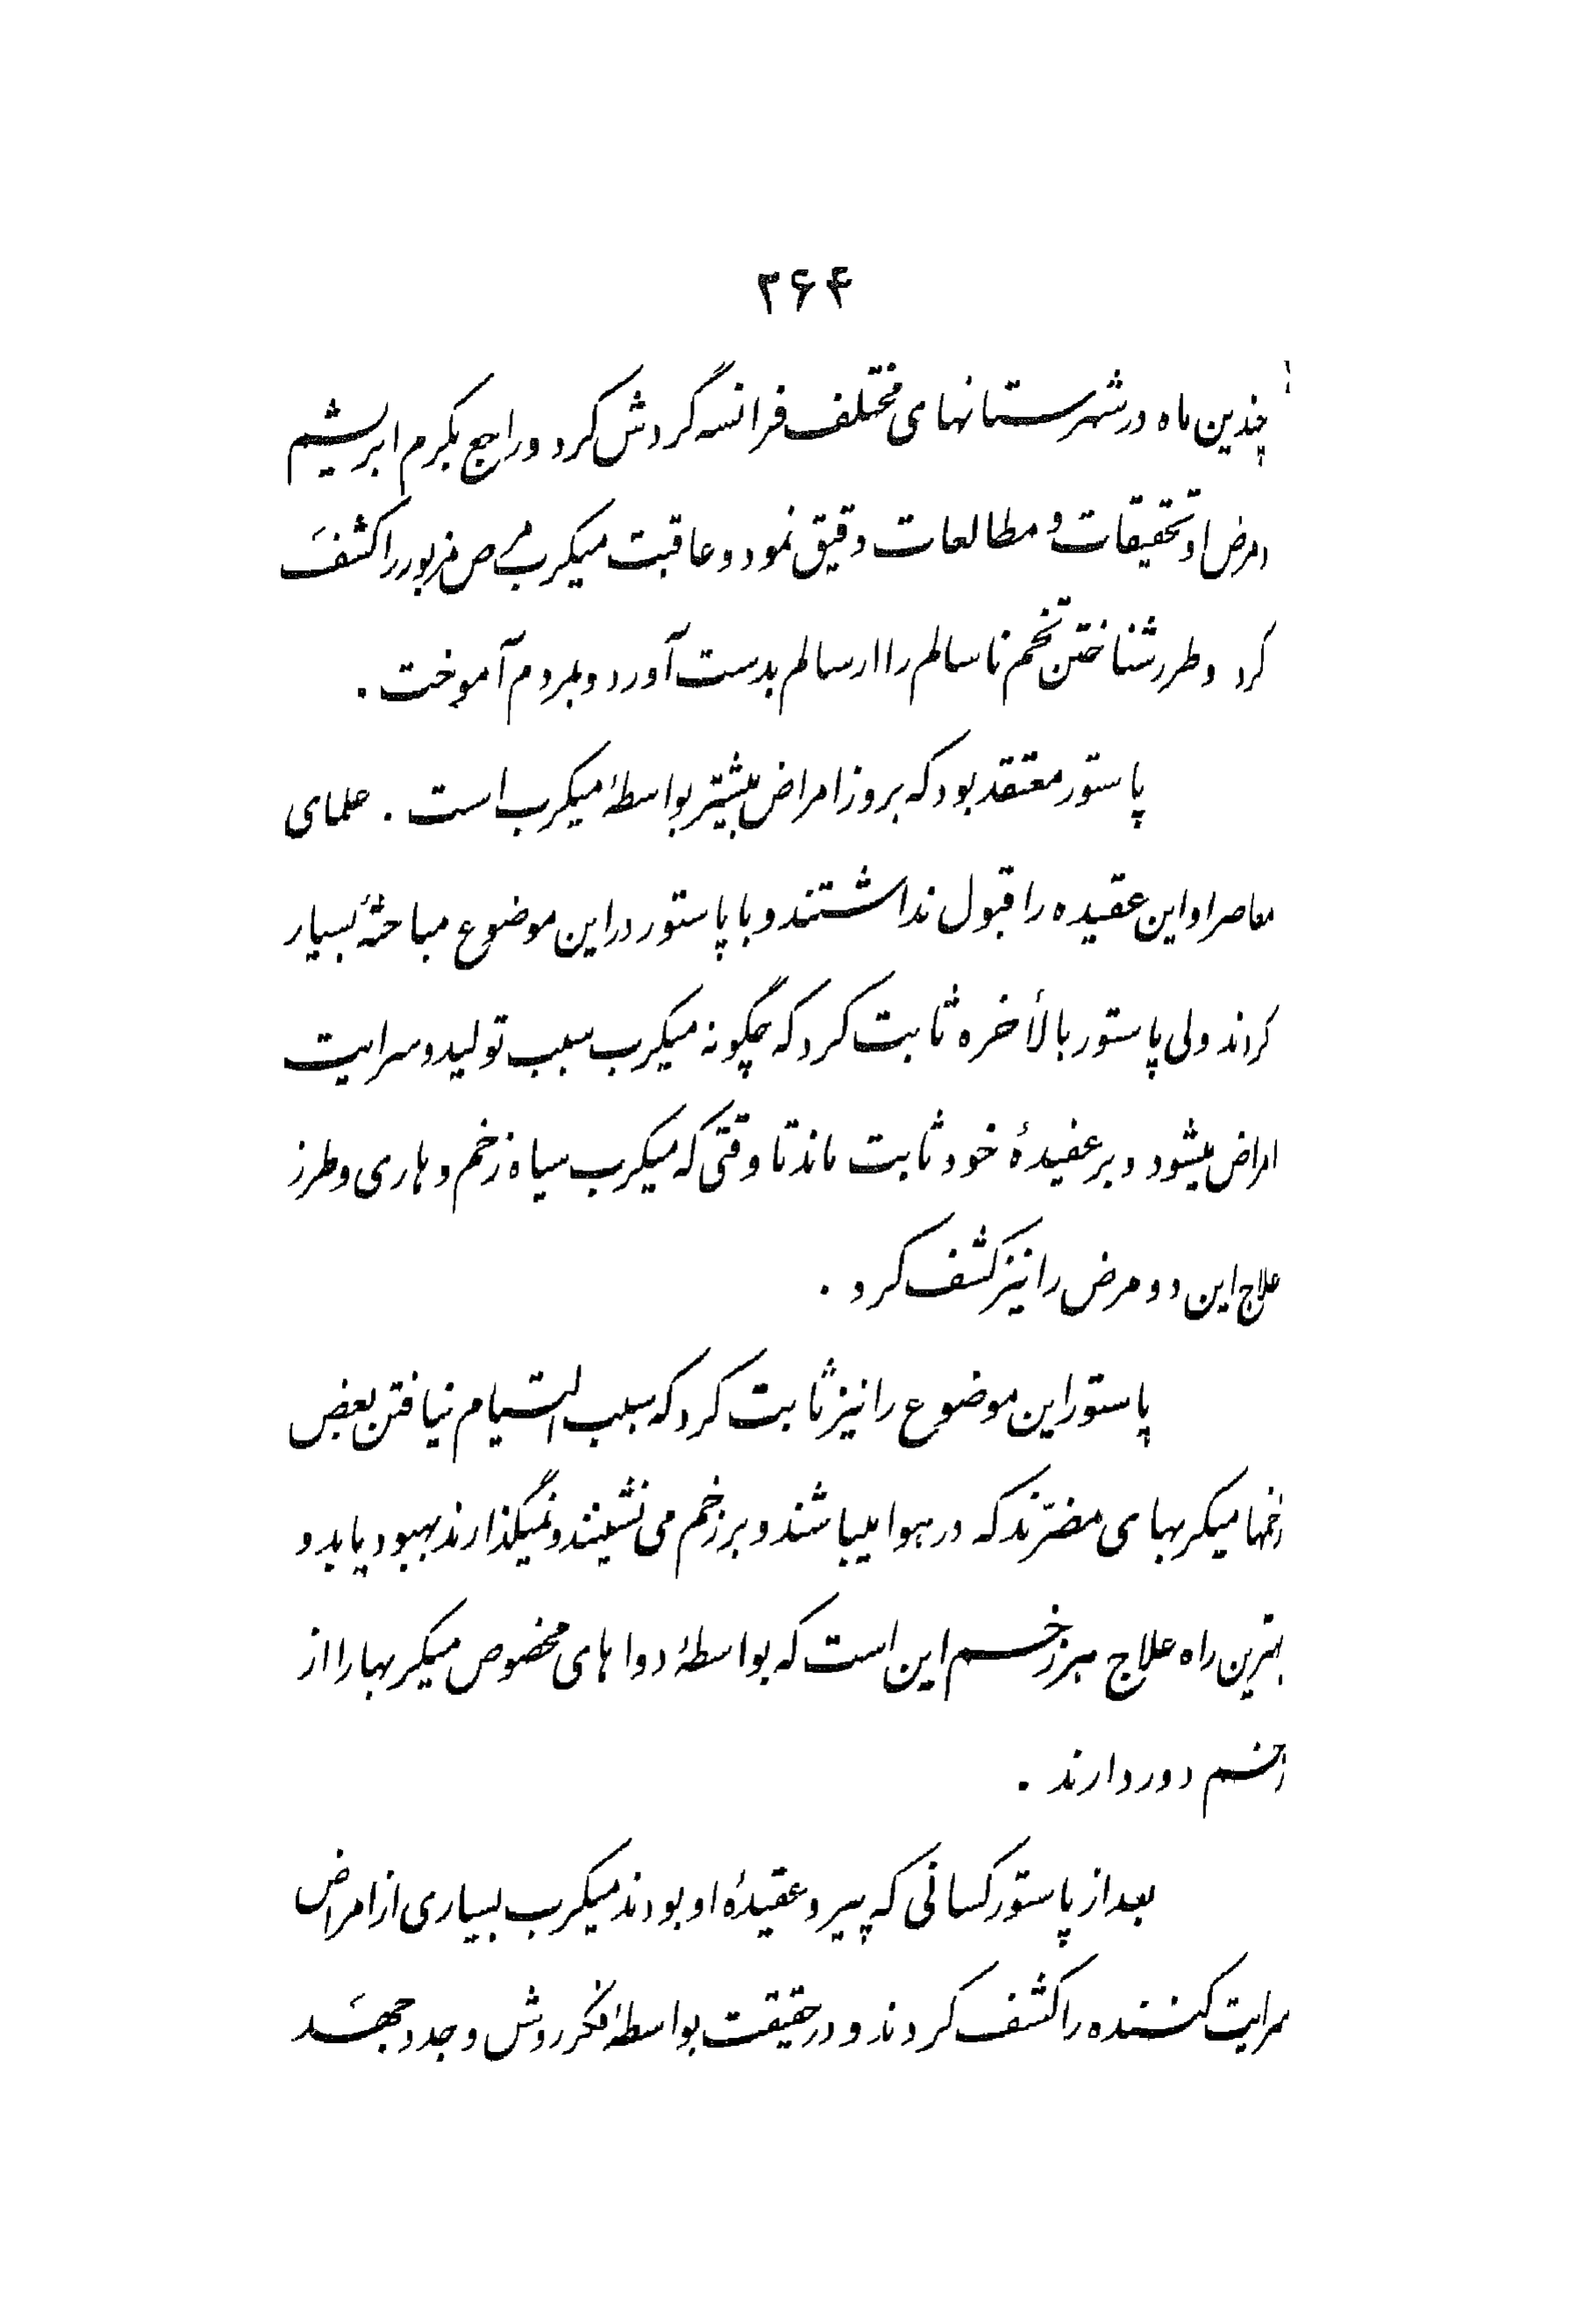 ۲۶۴
چندین ماه در شهرستانهای مختلف فرانسه گردش کرد و راجع بکرم ابریشم
و مرض او تحقیقات و مطالعات دقیق نمود و عاقبت میکرب مرض مزبور را کشف
کرد و طرز شناختن تخم ناسالم را از سالم بدست آورد و بمردم آموخت .
پاستور معتقد بود که بروز امراض بیشتر بواسطهٔ میکرب است . علمای
معاصر او این عقیده را قبول نداشتند و با پاستور در این موضوع مباحثهٔ بسیار
کردند ولی پاستور بالأخره ثابت کرد که چگونه میکرب سبب تولید و سرایت
امراض میشود و بر عقیدهٔ خود ثابت ماند تا وقتی که میکرب سیاه زخم و هاری و طرز
علاج این دو مرض را نیز کشف کرد .
پاستور این موضوع را نیز ثابت کرد که سبب التیام نیافتن بعض
زخمها میکربهای مضرّند که در هوا میباشند و بر زخم می نشینند و نمیگذارند بهبود یابد و
بهترین راه علاج هر زخم این است که بواسطهٔ دواهای مخصوص میکربها را از
زخم دور دارند .
بعد از پاستور کسانی که پیرو عقیدهٔ او بودند میکرب بسیاری از امراض
سرایت کننده را کشف کردند و در حقیقت بواسطهٔ فکر روشن و جد و جهد